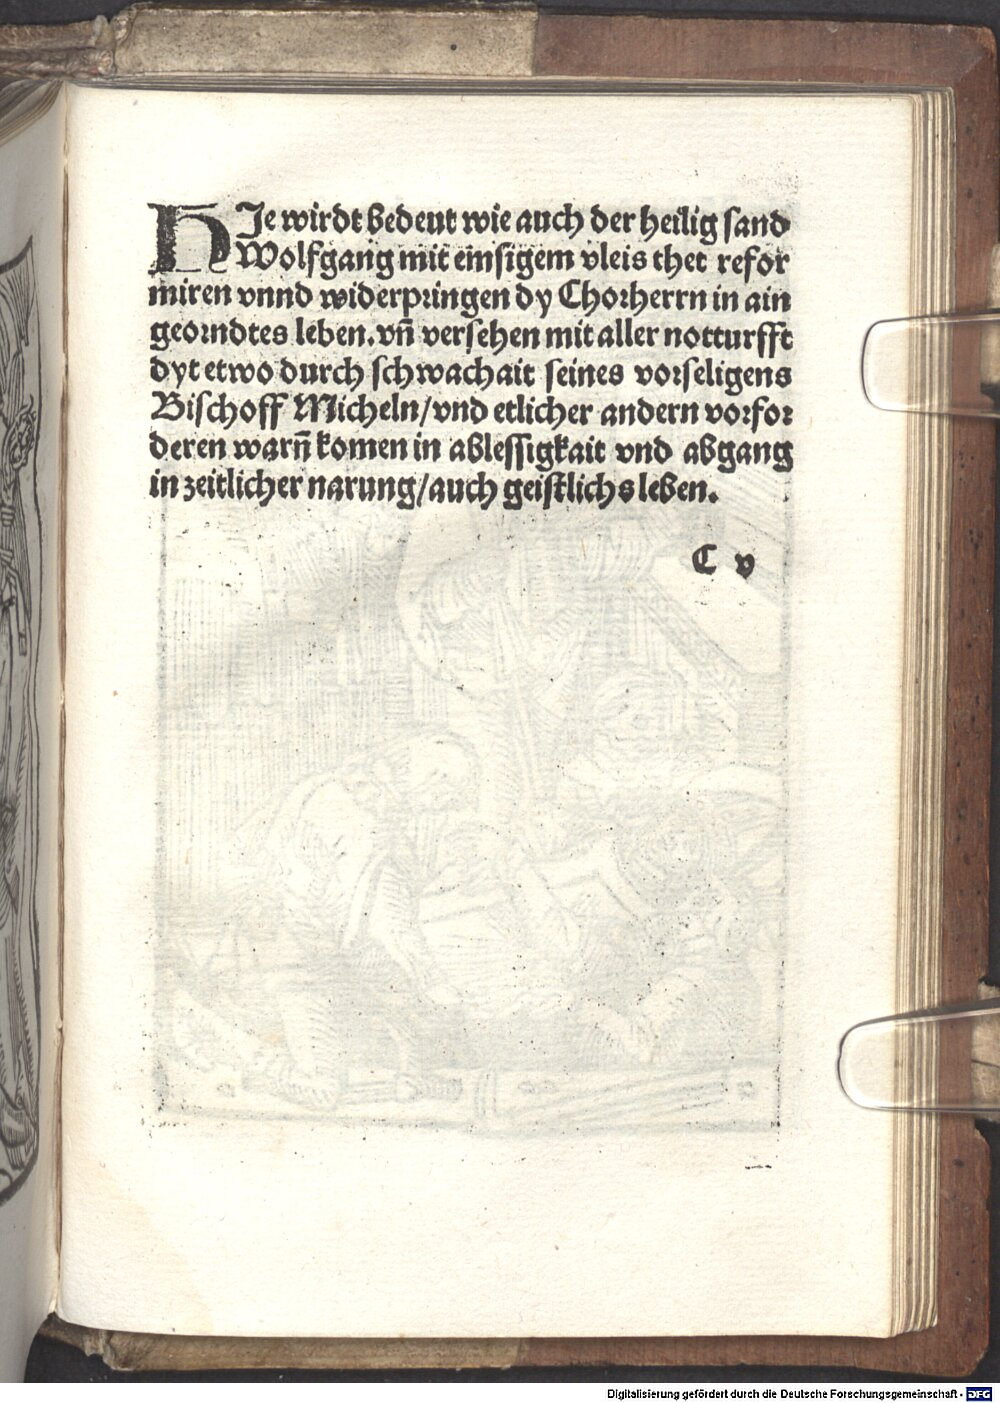 HIe wirdt bedeut wie auch der heilig sand
Wolfgang mit emsigem vleis thet refor
miren vnnd widerpringen dy Chorherrn in ain
georndtes leben. vn̄ versehen mit aller notturfft
dyt etwo durch schwachait seines vorseligens
Bischoff Micheln/vnd etlicher andern vorfor
deren warn̄ komen in ablessigkait vnd abgang
in zeitlicher narung/auch geistlichs leben.
C v
Digitalisierung gefördert durch die Deutsche Forschungsgemeinschaft - DFG